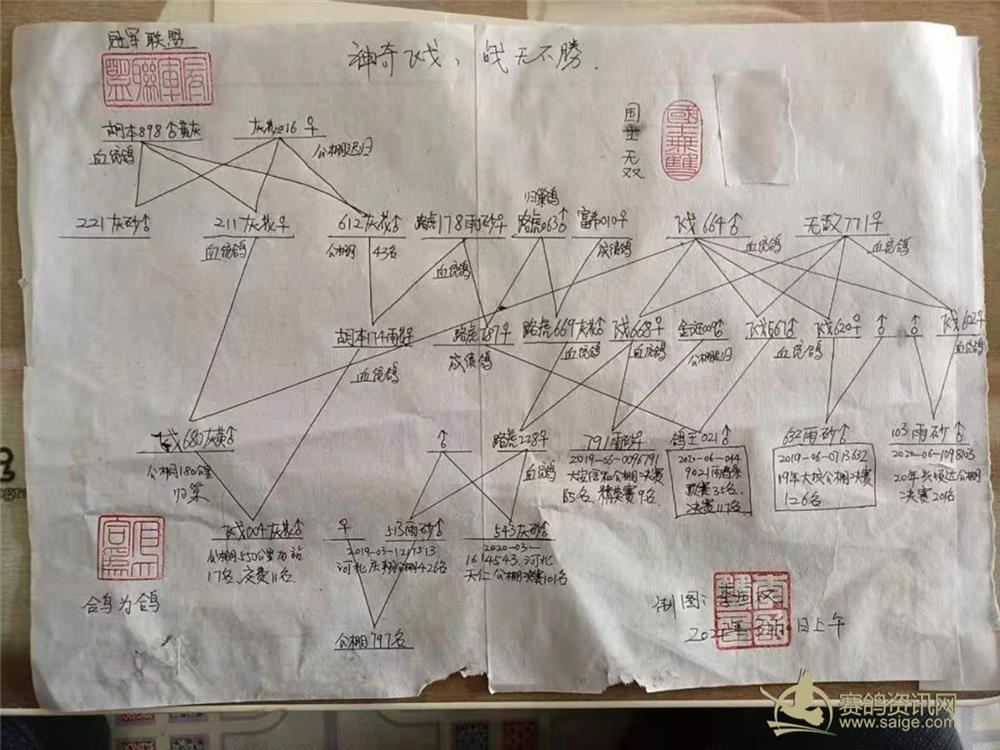 冠军联盟
神奇飞戈，战无不勝.
胡本898♂黄灰
血统鸽
灰花016♀
公棚迟归
国士无双
國士無雙
221灰砂♂
211灰花♀
血统鸽
612灰花♂
公棚 43名
路虎178雨砂♀
血统鸽
归巢鸽
路虎063♂
富帝010♀
成绩鸽
飞戈664♂
血统鸽
无敌771♀
血统鸽
胡本174雨♀
血统鸽
路虎787♀
成绩鸽
路虎669灰♂
血统鸽
飞戈668♀
血统鸽
公棚迟归
飞戈661♂
血统鸽
飞戈620♀
♂
♂
飞戈602♀
血统鸽
飞戈680灰黄♂
公棚180公里
归巢
♂
路虎228♀
血鸽
791雨砂♀
2019-06-0096791
大安信和公棚决赛
85名.精英赛9名.
鸽王021♂
2020-06-044
9021雨白条
预赛35名.
决赛117名
632雨砂♂
2019-06-0713632
19年大埃公棚决赛
126名
103雨砂♂
2020-06-1098103
20年长顺达公棚
决赛20名
飞戈004灰花♂
公棚550公里加站
17名.决赛11名.
♀
513雨砂♂
2019-03-1217513
河北庆翔公棚426名
543灰砂♂
2020-03-
1614543.河北
天仁公棚决赛101名
公棚797名
鸽为鸽
制图:
日上午
赛鸽资讯网
www.saige.com